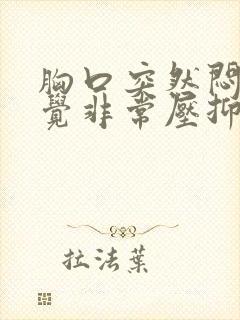 胸口突然悶
覺非常壓抑
拉法葉